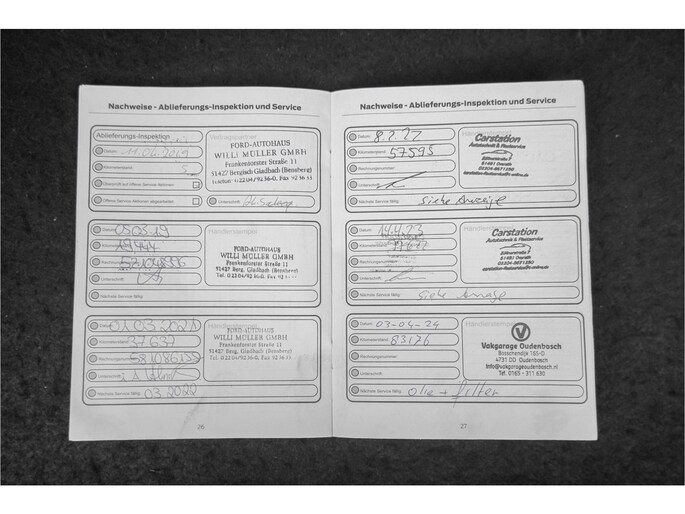 Nachweise - Ablieferungs-Inspektion und Service
Ablieferungs-Inspektion
Datum
Kilometerstand
Überschrift auf offene Service Aktionen
Offene Service Aktionen abgearbeitet
Vertragspartner
FORD-AUTOHAUS
WILLI MÜLLER GMBH
Frankenforster Straße 11
51427 Bergisch Gladbach (Bensberg)
Telefon 02204/9236-0, Fax 923633
Unterschrift
Datum 050519
Kilometerstand
Rechnungsnummer
Unterschrift
Nächste Service fällig
Händlerstempel
FORD-AUTOHAUS
WILLI MÜLLER GMBH
Frankenforster Straße 11
51427 Berg. Gladbach (Bensberg)
Tel. 02204/9236-0, Fax 923633
Datum 01032021
Kilometerstand 37637
Rechnungsnummer
Unterschrift
Nächste Service fällig 03.2022
Händlerstempel
FORD-AUTOHAUS
WILLI MÜLLER GMBH
Frankenforster Straße 11
51427 Berg. Gladbach (Bensberg)
Tel. 02204/9236-0, Fax 923633
26
Nachweise - Ablieferungs-Inspektion und Service
Datum 8.2.22
Kilometerstand 57595
Rechnungsnummer
Unterschrift
Nächste Service fällig siehe Anzeige
Carstation
Autotechnik & Flottservice
51491 Overath
02204-9671280
Datum 14.4.23
Kilometerstand 77677
Rechnungsnummer
Unterschrift
Nächste Service fällig siehe Anzeige
Carstation
Autotechnik & Flottservice
51491 Overath
02204-9671280
Datum 03-04-24
Kilometerstand 83176
Rechnungsnummer
Unterschrift
Nächste Service fällig Olie + filter
Händlerstempel
Vakgarage Oudenbosch
Bosschendijk 165-D
4731 DD Oudenbosch
Info@vakgarageoudenbosch.nl
Tel. 0165 - 311 630
27